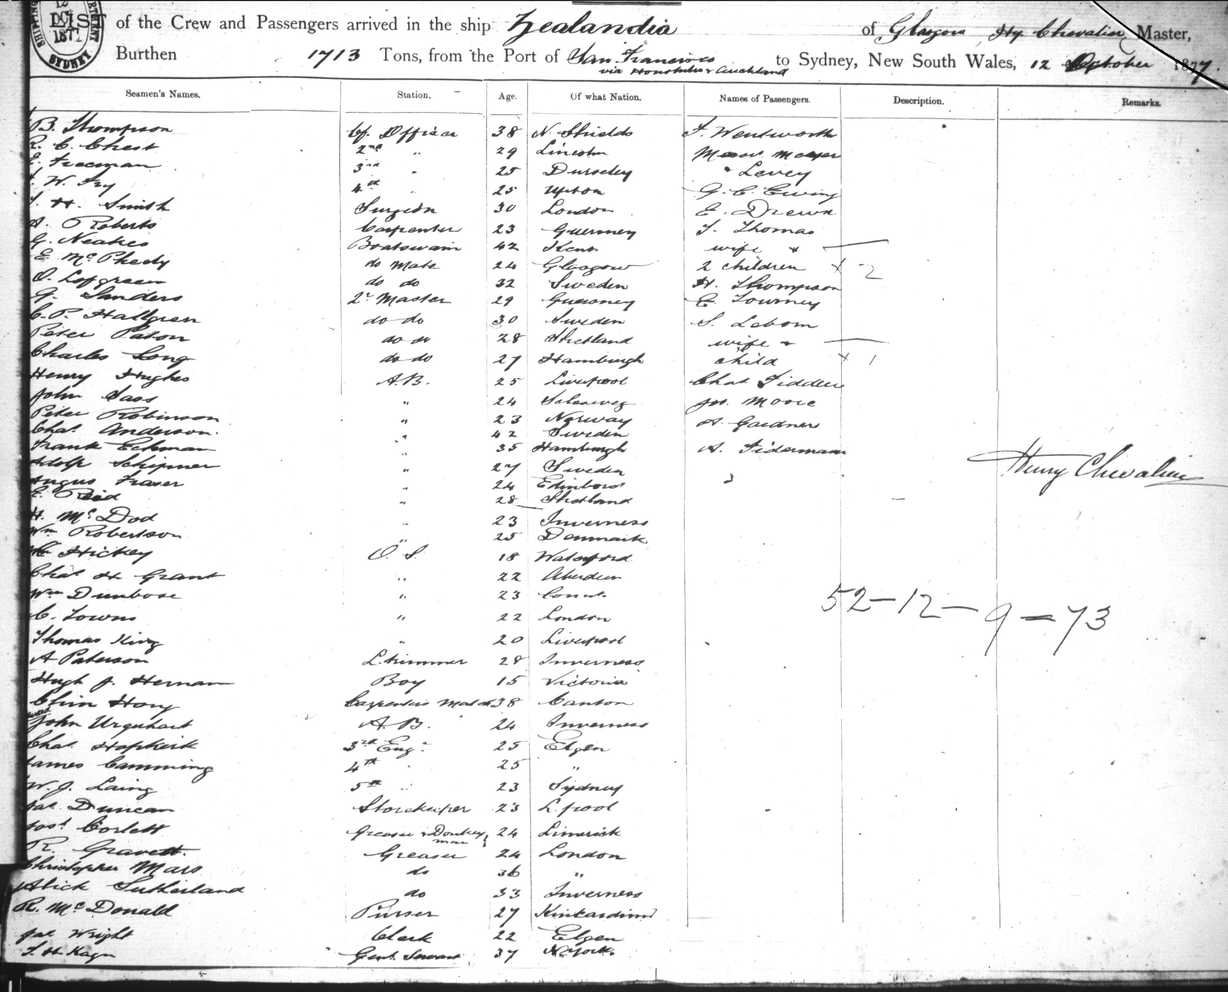 LIST of the Crew and Passengers arrived in the ship Zealandia of Glasgow Hy Chevalier Master,
Burthen 1713 Tons, from the Port of San Francisco via Honolulu & Auckland to Sydney, New South Wales, 12 October 1877.
Seamen's Names. Station. Age. Of what Nation. Names of Passengers. Description. Remarks.
B. Thompson Cf. Officer 38 N. Shields F. Wentworth
R. C. Chest 2nd " 29 Lincoln
E. Freeman 3rd " 25 Dursley " Levey
W. Fry 4th " 25 Upton G. C. Ewing
H. Smith Surgeon 30 London E. Drewn
A. Roberts Carpenter 23 Guernsey T. Thomas
G. Neakes Boatswain 42 Kent wife &
E. McPhedy do Mate 24 Glasgow 2 children x 2
O. Lofgreen do do 32 Sweden H. Thompson
G. Sanders 2r Master 29 Guernsey E. Towrney
C. P. Hallgren do do 30 Sweden S. Leborn
Peter Paton do do 28 Shetland wife &
Charles Long do do 27 Hamburgh child x 1
Henry Hughes A.B. 25 Liverpool Chas Fiddler
John Sass " 24 Jos. Moore
Peter Robinson " 23 Norway A. Gardner
Chas. Anderson " 42 Sweden
Frank Eckman " 35 Hamburgh A. Fidermann
Adolf Schipmer " 27 Sweden
Henry Chevalier
Angus Fraser " 24 Edinboro
E. Reid " 28 Shetland
H. McDod " 23 Inverness
Wm Robertson " 25 Denmark
Hickey O.S. 18 Waterford
Chas H Grant " 22 Aberdeen
Wm Dunbose " 23
52 - 12 - 9 = 73
C. Towns " 22 London
Thomas King " 20 Liverpool
A Paterson L. trimmer 28 Inverness
Hugh J. Hernan Boy 15 Victoria
Chin Hong Carpenters Mate 38 Canton
John Urquhart A.B. 24 Inverness
Chas Hopkirk 3rd Eng. 25 Elgen
James Camming 4th " 25 "
W. J. Laing 5th " 23 Sydney
Jas Duncan Storekeeper 23 L.pool
Josh Corlett Greaser & Donkey man 24 Limerick
R. Gravett Greaser 24 London
Christopher Mars do 36 "
Alick Sutherland do 33 Inverness
R. McDonald Purser 27 Kinkardine
Jas Wright Clerk 22 Elgen
Genl. Servant 37 N. York